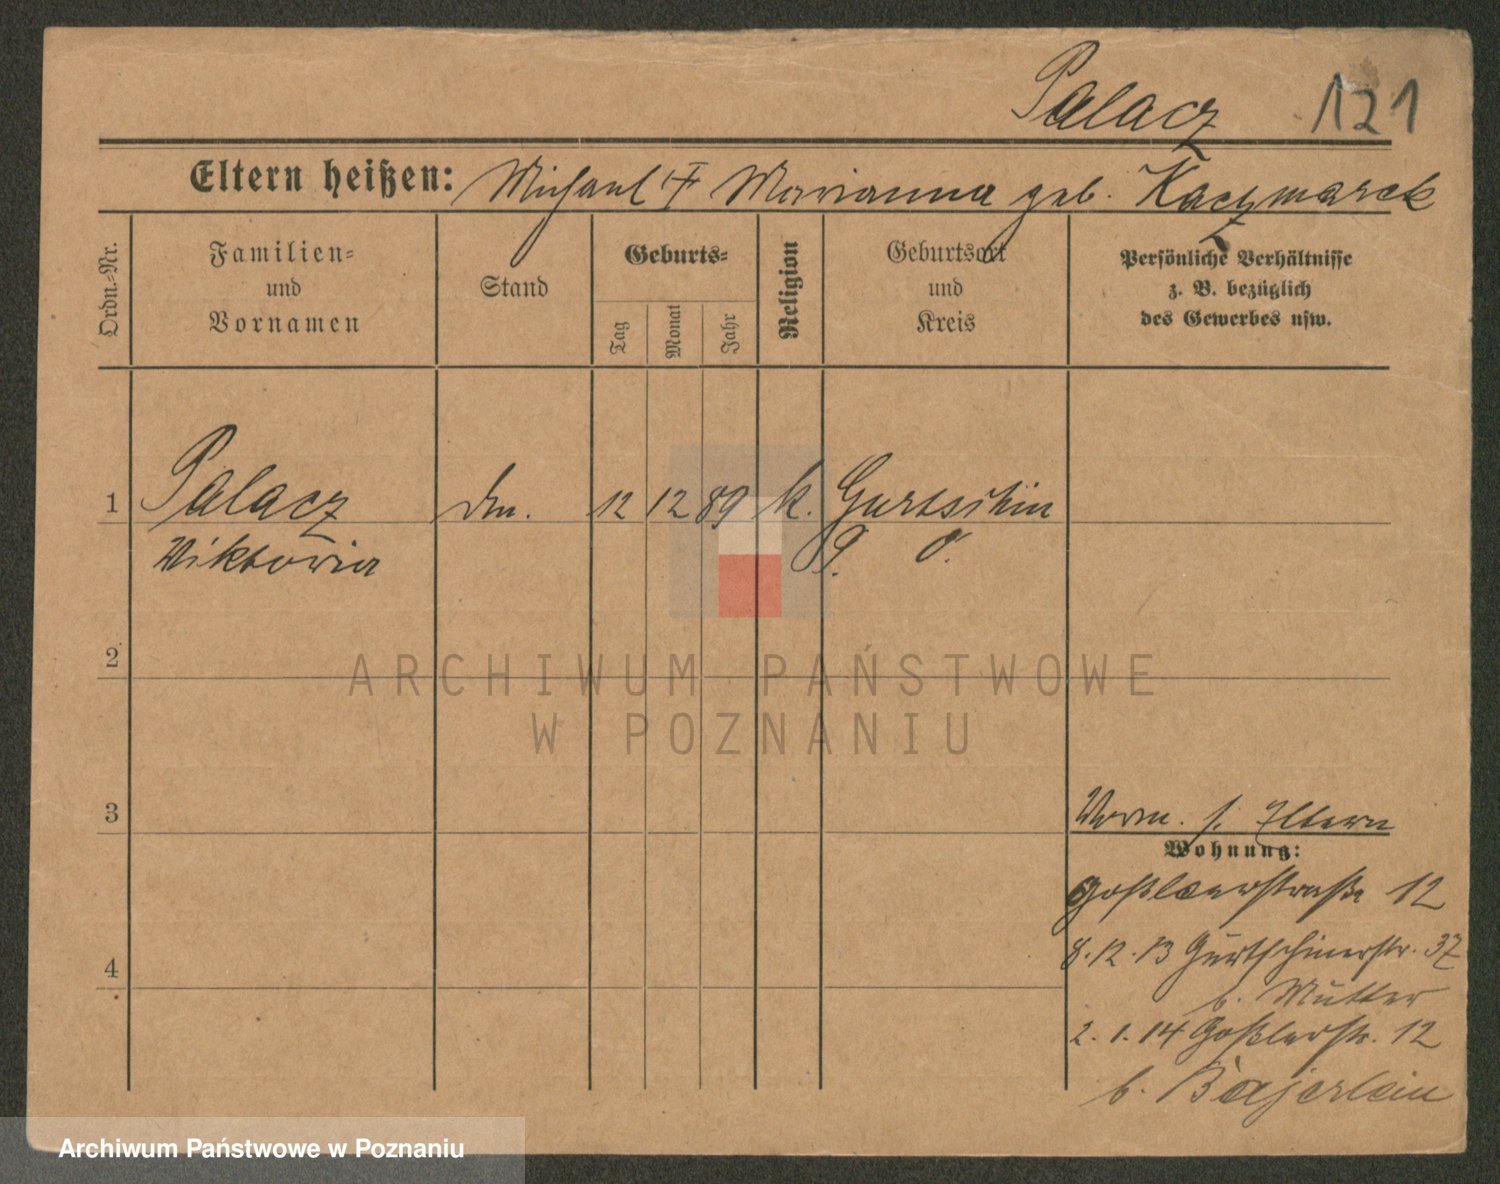 Palacz 121
Eltern heißen: Michael † Marianna geb. Kaczmarek
Ordn.-Nr.
Familien-
und
Vornamen
Stand
Geburts-
Tag
Monat
Jahr
Religion
Geburtsort
und
Kreis
Persönliche Verhältnisse
z. B. bezüglich
des Gewerbes usw.
1 Palacz 12 12 89 k. Gurtschin
Viktoria P. O.
2
3
4
Vorm. s. Eltern
Wohnung:
Goßlerstraße 12
8.12.13 Gurtschinerstr. 37
b. Mutter
2.1.14 Goßlerstr. 12
b. Bajerlein
ARCHIWUM PAŃSTWOWE
W POZNANIU
Archiwum Państwowe w Poznaniu